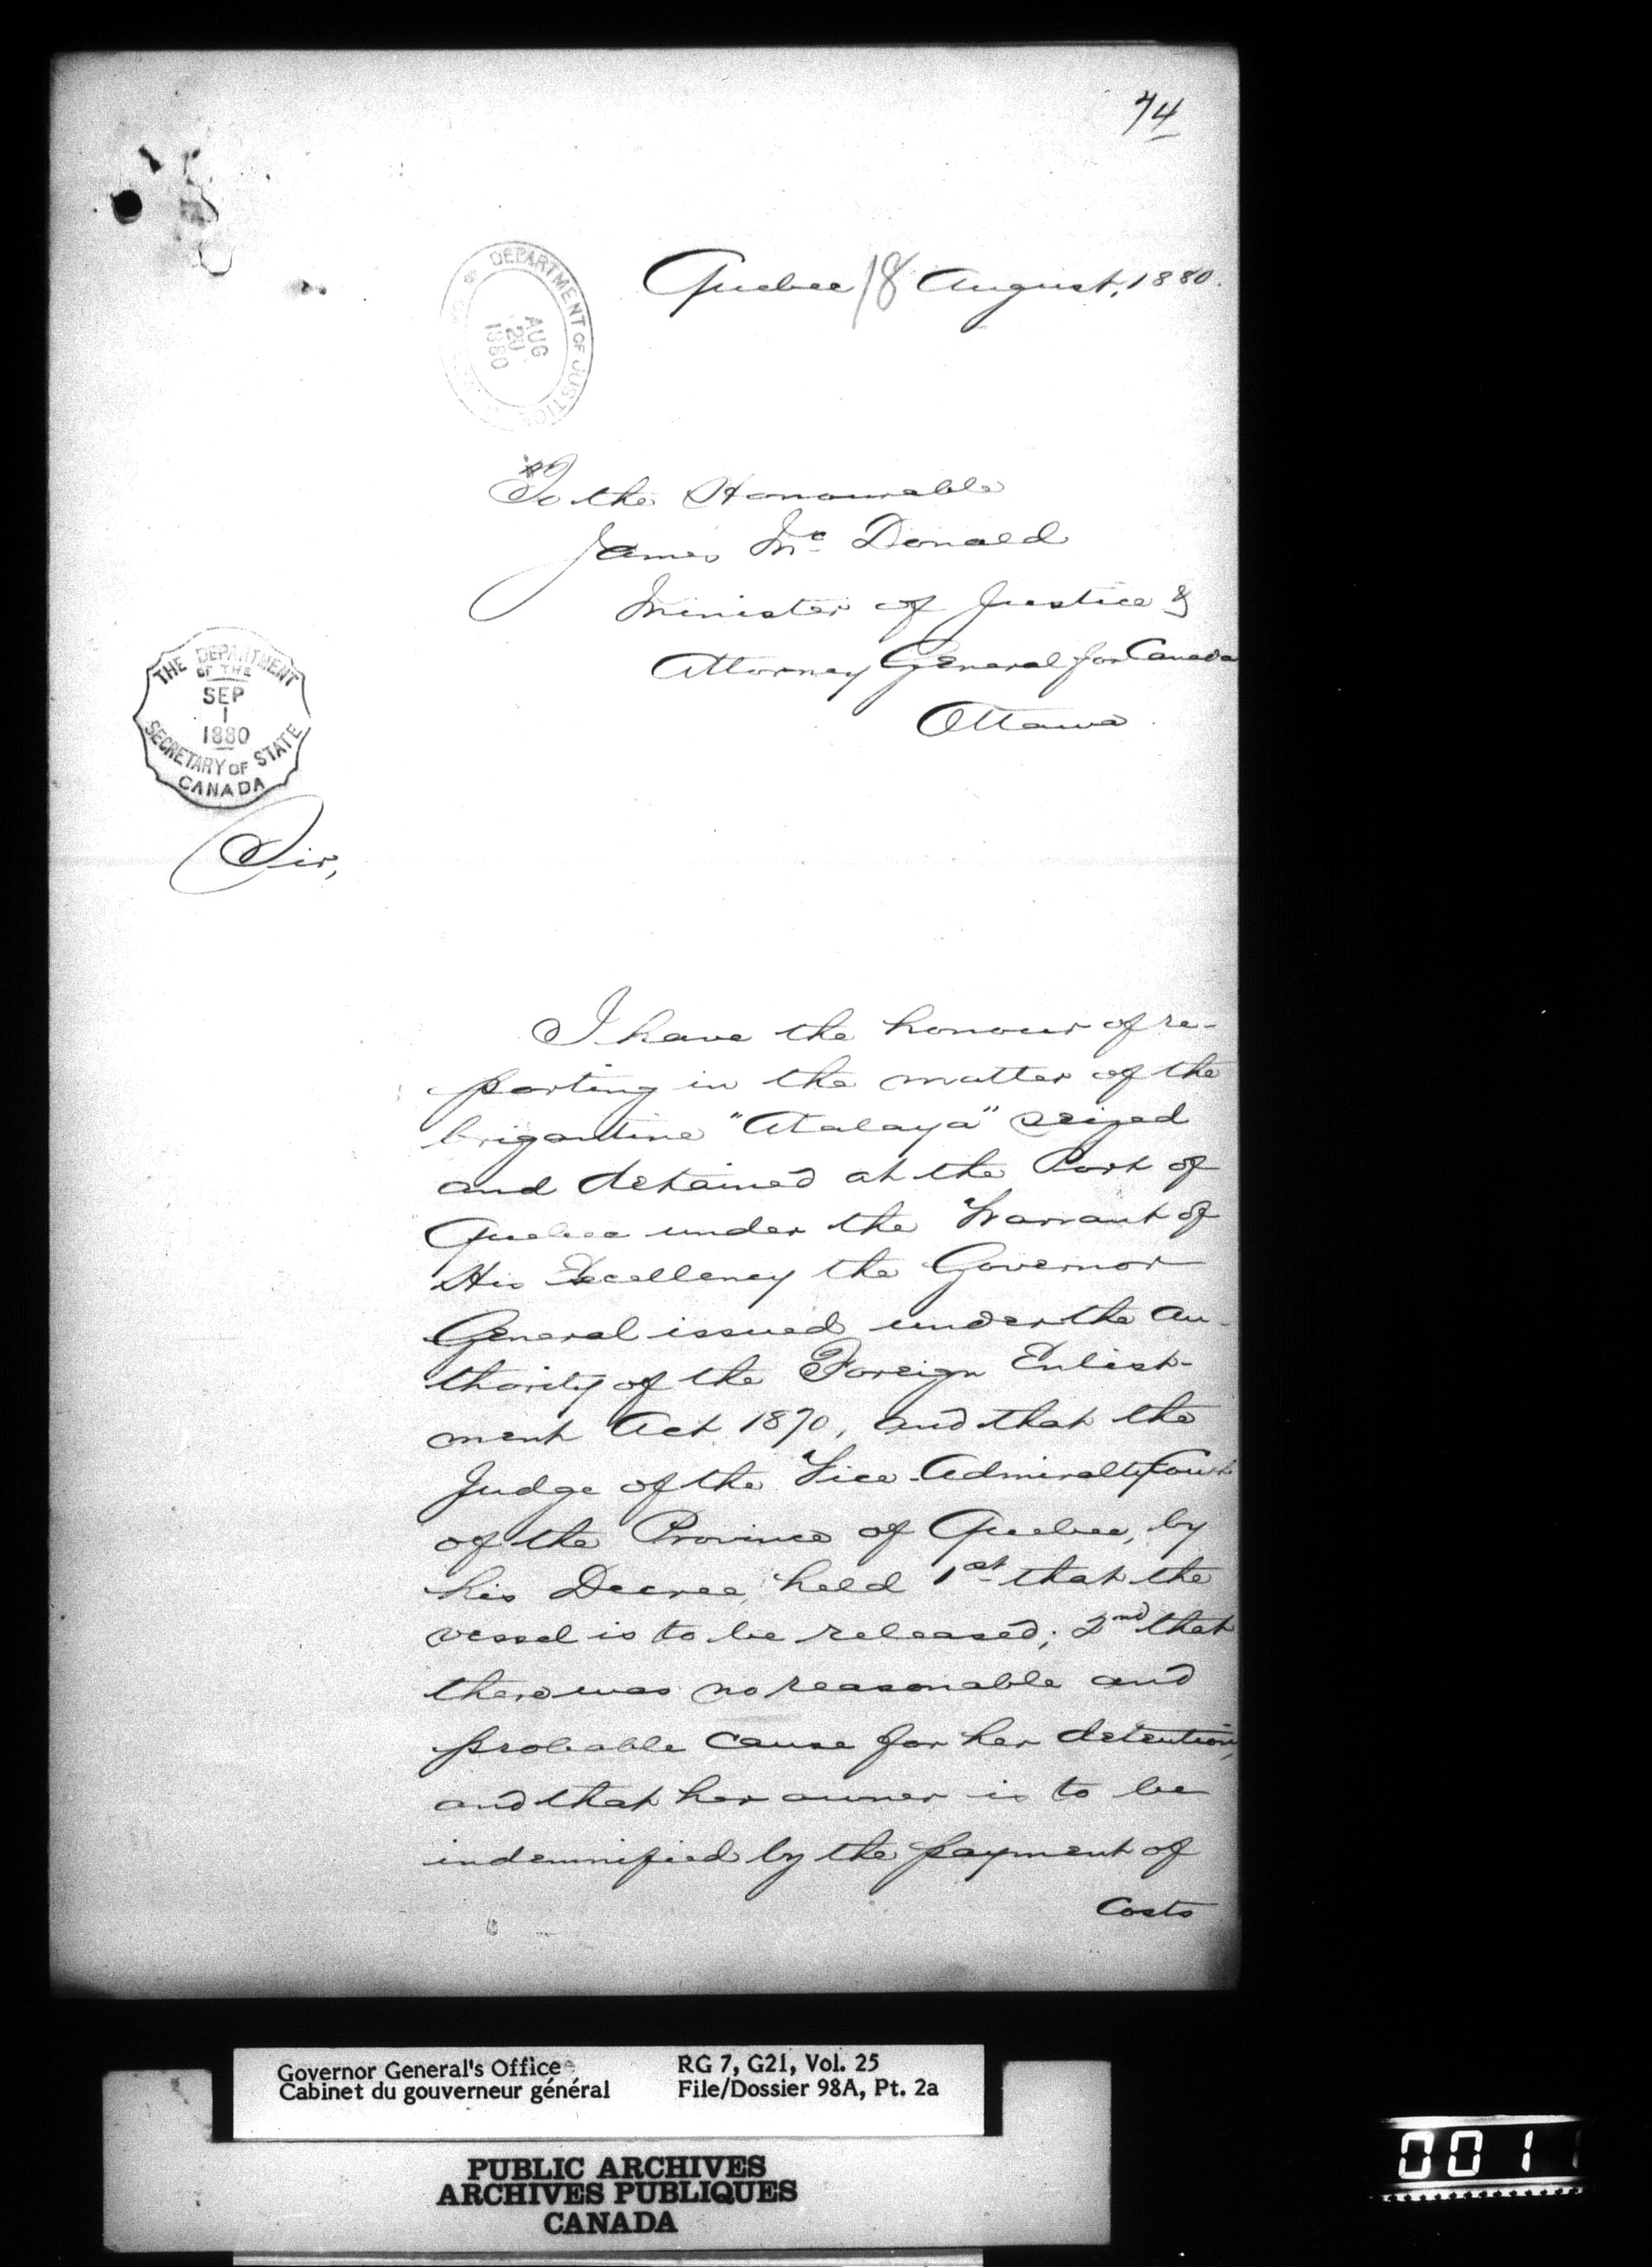 74
Quebec 18 August, 1880.
DEPARTMENT OF JUSTICE
AUG
20
1880
To the Honourable
James Mc Donald
Minister of Justice &
Attorney General for Canada
Ottawa.
THE DEPARTMENT
OF THE
SEP
1
1880
SECRETARY OF STATE
CANADA
Sir,
I have the honour of re-
porting in the matter of the
brigantine "Atalaya" seized
and detained at the Port of
Quebec under the Warrant of
His Excellency the Governor
General issued under the au-
thority of the Foreign Enlist-
ment Act 1870, and that the
Judge of the Vice-Admiralty Court
of the Province of Quebec, by
his Decree, held 1st that the
vessel is to be released; 2nd that
there was no reasonable and
probable cause for her detention,
and that her owner is to be
indemnified by the payment of
Costs
Governor General's Office
Cabinet du gouverneur général
RG 7, G21, Vol. 25
File/Dossier 98A, Pt. 2a
PUBLIC ARCHIVES
ARCHIVES PUBLIQUES
CANADA
001